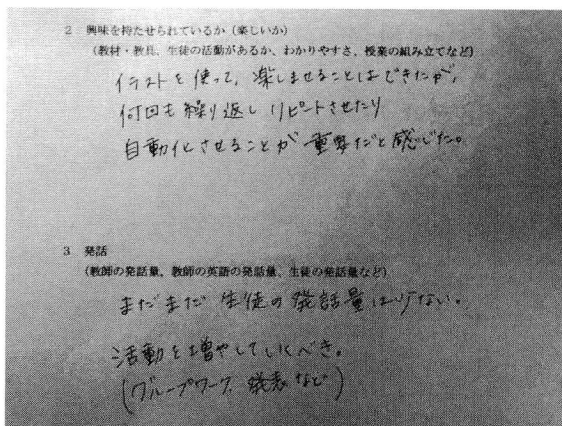 2 興味を持たせられているか（楽しいか）
（教材・教具、生徒の活動があるか、わかりやすさ、授業の組み立てなど）
イラストを使って、楽しませることはできたが、
何回も繰り返しリピートさせたり
自動化させることが重要だと感じた。
3 発話
（教師の発話量、教師の英語の発話量、生徒の発話量など）
まだまだ生徒の発話量は少ない。
活動を増やしていくべき。
（グループワーク、発表など）